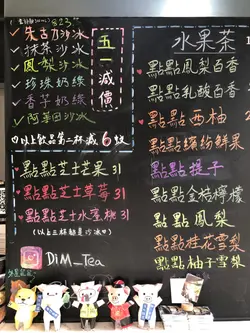 823
朱古力沙冰
抹茶沙冰
鳳梨沙冰
珍珠奶綠
香芋奶綠
阿華田沙冰
五一減價
以上飲品第一杯減6蚊
點點芝士芒果 31
點點芝士草莓 31
點點芝士水蜜桃 31
(以上三杯都是沙冰)
DiM_Tea
水果茶
點點鳳梨百香
點點乳酸百香
點點西柚
點點繽紛鮮果
點點提子
點點金桔檸檬
點點鳳梨
點點桂花雪梨
點點柚子雪梨